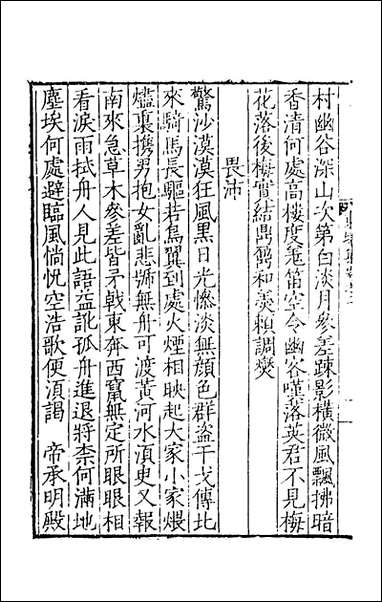 村幽谷深山次第白淡月參差疎影橫微風飄拂暗
香清何處高樓度羗笛空令幽客嘆落英君不見梅
花落後梅實結鼎鼐和羹賴調燮
畏沛
驚沙漠漠狂風黑日光慘淡無顔色群盗干戈傳北
來騎馬長驅若鳥翼到處火煙相映起大家小家煨
燼裏攜男抱女亂悲號無舟可渡黃河水湏臾又報
南來急草木參差皆矛戟東奔西竄無定所眼眼相
看淚雨拭舟人見此語益訛孤舟進退將柰何滿地
塵埃何處避臨風惝怳空浩歌便湏謁 帝承明殿